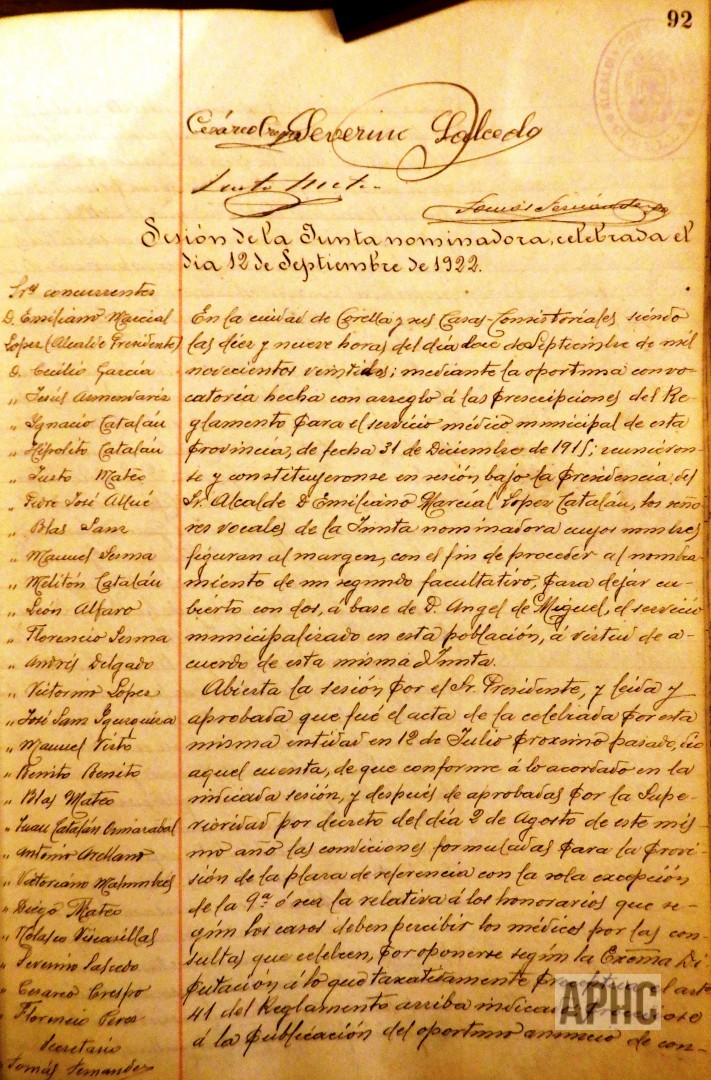 92
Cesáreo Crespo Severino Salcedo
Justo Mateo
Tomás Fernández
Sesión de la Junta nominadora, celebrada el
día 12 de Septiembre de 1922.
Sres concurrentes
D. Emiliano Marcial
López (Alcalde Presidente)
D. Cecilio García
„ Jesús Armendariz
„ Ignacio Catalán
„ Hipólito Catalán
„ Justo Mateo
„ Fidre José Allué
„ Blas Sanz
„ Manuel Sesma
„ Melitón Catalán
„ León Alfaro
„ Florencio Sesma
„ Andrés Delgado
„ Victorino López
„ José Sanz
„ Manuel Virto
„ Benito Benito
„ Blas Mateo
„ Juan Catalán Ormazabal
„ Antonio Arellano
„ Victoriano
„ Diego Mateo
„ Nolasco Viscasillas
„ Severino Salcedo
„ Cesareo Crespo
„ Florencio Perez
Secretario
Tomás Fernandez
En la ciudad de Corella y sus Casas-Consistoriales siendo
las diez y nueve horas del día doce de Septiembre de mil
novecientos veintidos; mediante la oportuna convo-
catoria hecha con arreglo á las prescripciones del Re-
glamento para el servicio médico municipal de esta
provincia, de fecha 31 de Diciembre de 1915; reunieron-
se y constituyeronse en sesión bajo la presidencia del
Sr. Alcalde D Emiliano Marcial López Catalán, los seño
res vocales de la Junta nominadora cuyos nombres
figuran al margen, con el fin de proceder al nombra-
miento de un segundo facultativo, para dejar cu-
bierto con dos, á base de D. Angel de Miguel, el servicio
municipalizado en esta población, á virtud de a-
cuerdo de esta misma Junta.
Abierta la sesión por el Sr. Presidente, y leida y
aprobada que fué el acta de la celebrada por esta
misma entidad en 12 de Julio próximo pasado, dio
aquel cuenta, de que conforme á lo acordado en la
indicada sesión, y después de aprobadas por la Supe-
rioridad por decreto del día 2 de Agosto de este mis-
mo año las condiciones formuladas para la provi-
sión de la plaza de referencia con la sola excepción
de la 9ª ó sea la relativa á los honorarios que se-
gún los casos deben percibir los médicos por las con-
sultas que celebren, por oponerse según la Excma Di-
putación á lo que taxativamente preceptúa el artº
41 del Reglamento arriba indicado
á la publicación del oportuno anuncio de con-
APHC